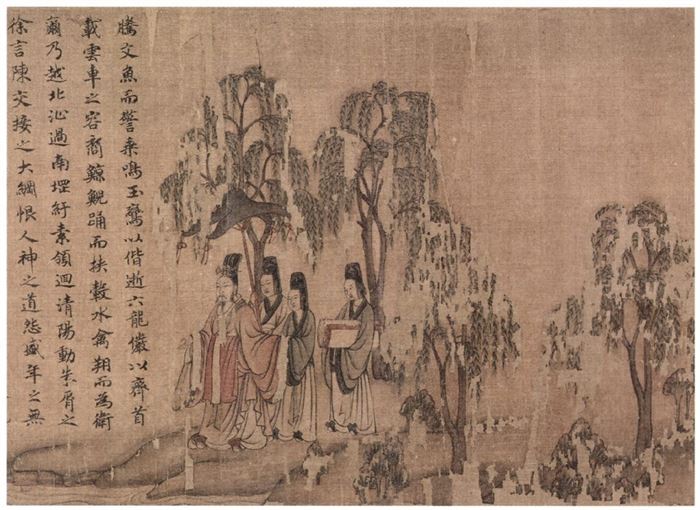 騰文魚而警乘鳴玉鸞以偕逝六龍儼以齊首
載雲車之容裔鯨鯢踊而扶轂水禽翔而為衛
爾乃越北沚過南堽紆素領迴清陽動朱脣之
徐言陳交接之大綱恨人神之道怨盛年之無